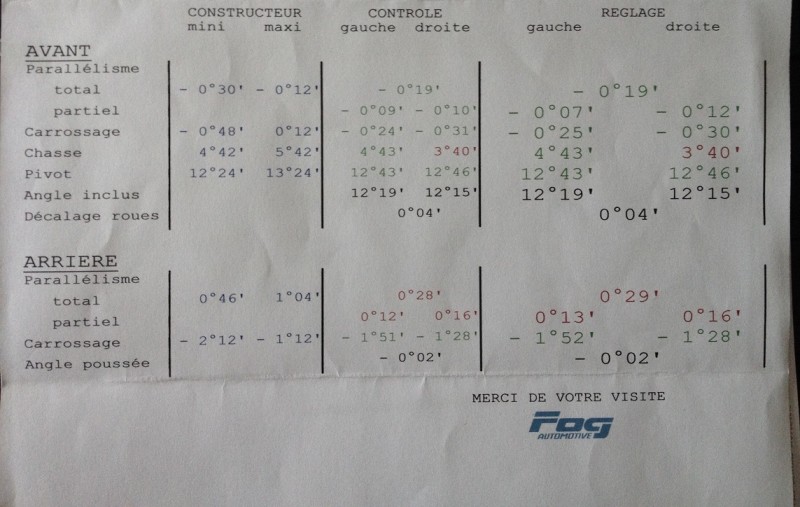 CONSTRUCTEUR CONTROLE REGLAGE
mini maxi gauche droite gauche droite
AVANT
Parallélisme
total - 0°30' - 0°12' - 0°19' - 0°19'
partiel - 0°09' - 0°10' - 0°07' - 0°12'
Carrossage - 0°48' 0°12' - 0°24' - 0°31' - 0°25' - 0°30'
Chasse 4°42' 5°42' 4°43' 3°40' 4°43' 3°40'
Pivot 12°24' 13°24' 12°43' 12°46' 12°43' 12°46'
Angle inclus 12°19' 12°15' 12°19' 12°15'
Décalage roues 0°04' 0°04'
ARRIERE
Parallélisme
total 0°46' 1°04' 0°28' 0°29'
partiel 0°12' 0°16' 0°13' 0°16'
Carrossage - 2°12' - 1°12' - 1°51' - 1°28' - 1°52' - 1°28'
Angle poussée - 0°02' - 0°02'
MERCI DE VOTRE VISITE
Fog
AUTOMOTIVE